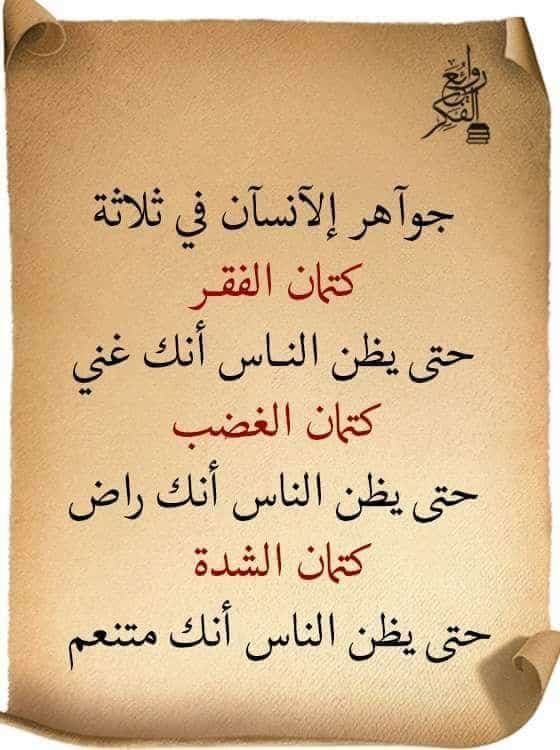 روائع
الفكر
جوآهر إلآنسآن في ثلاثة
كتمان الفقـر
حتى يظن النـاس أنك غني
كتمان الغضب
حتى يظن الناس أنك راض
كتمان الشدة
حتى يظن الناس أنك متنعم